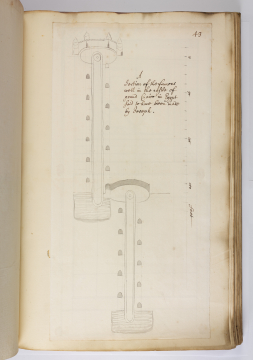 43
A
Section of the famous
well in the castle of
grand Cairo in Egypt
said to have been made
by Joseph.